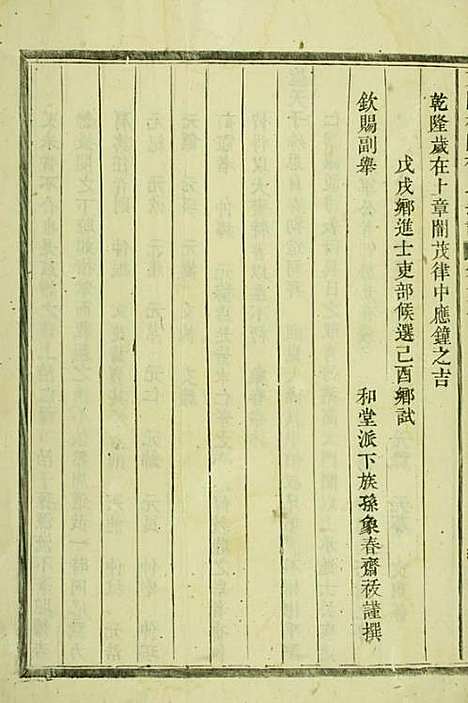 乾隆歲在上章閹茂律中應鐘之吉
戊戌鄉進士吏部候選己酉鄉試
欽賜副舉 和堂派下族孫象春齋莜謹撰